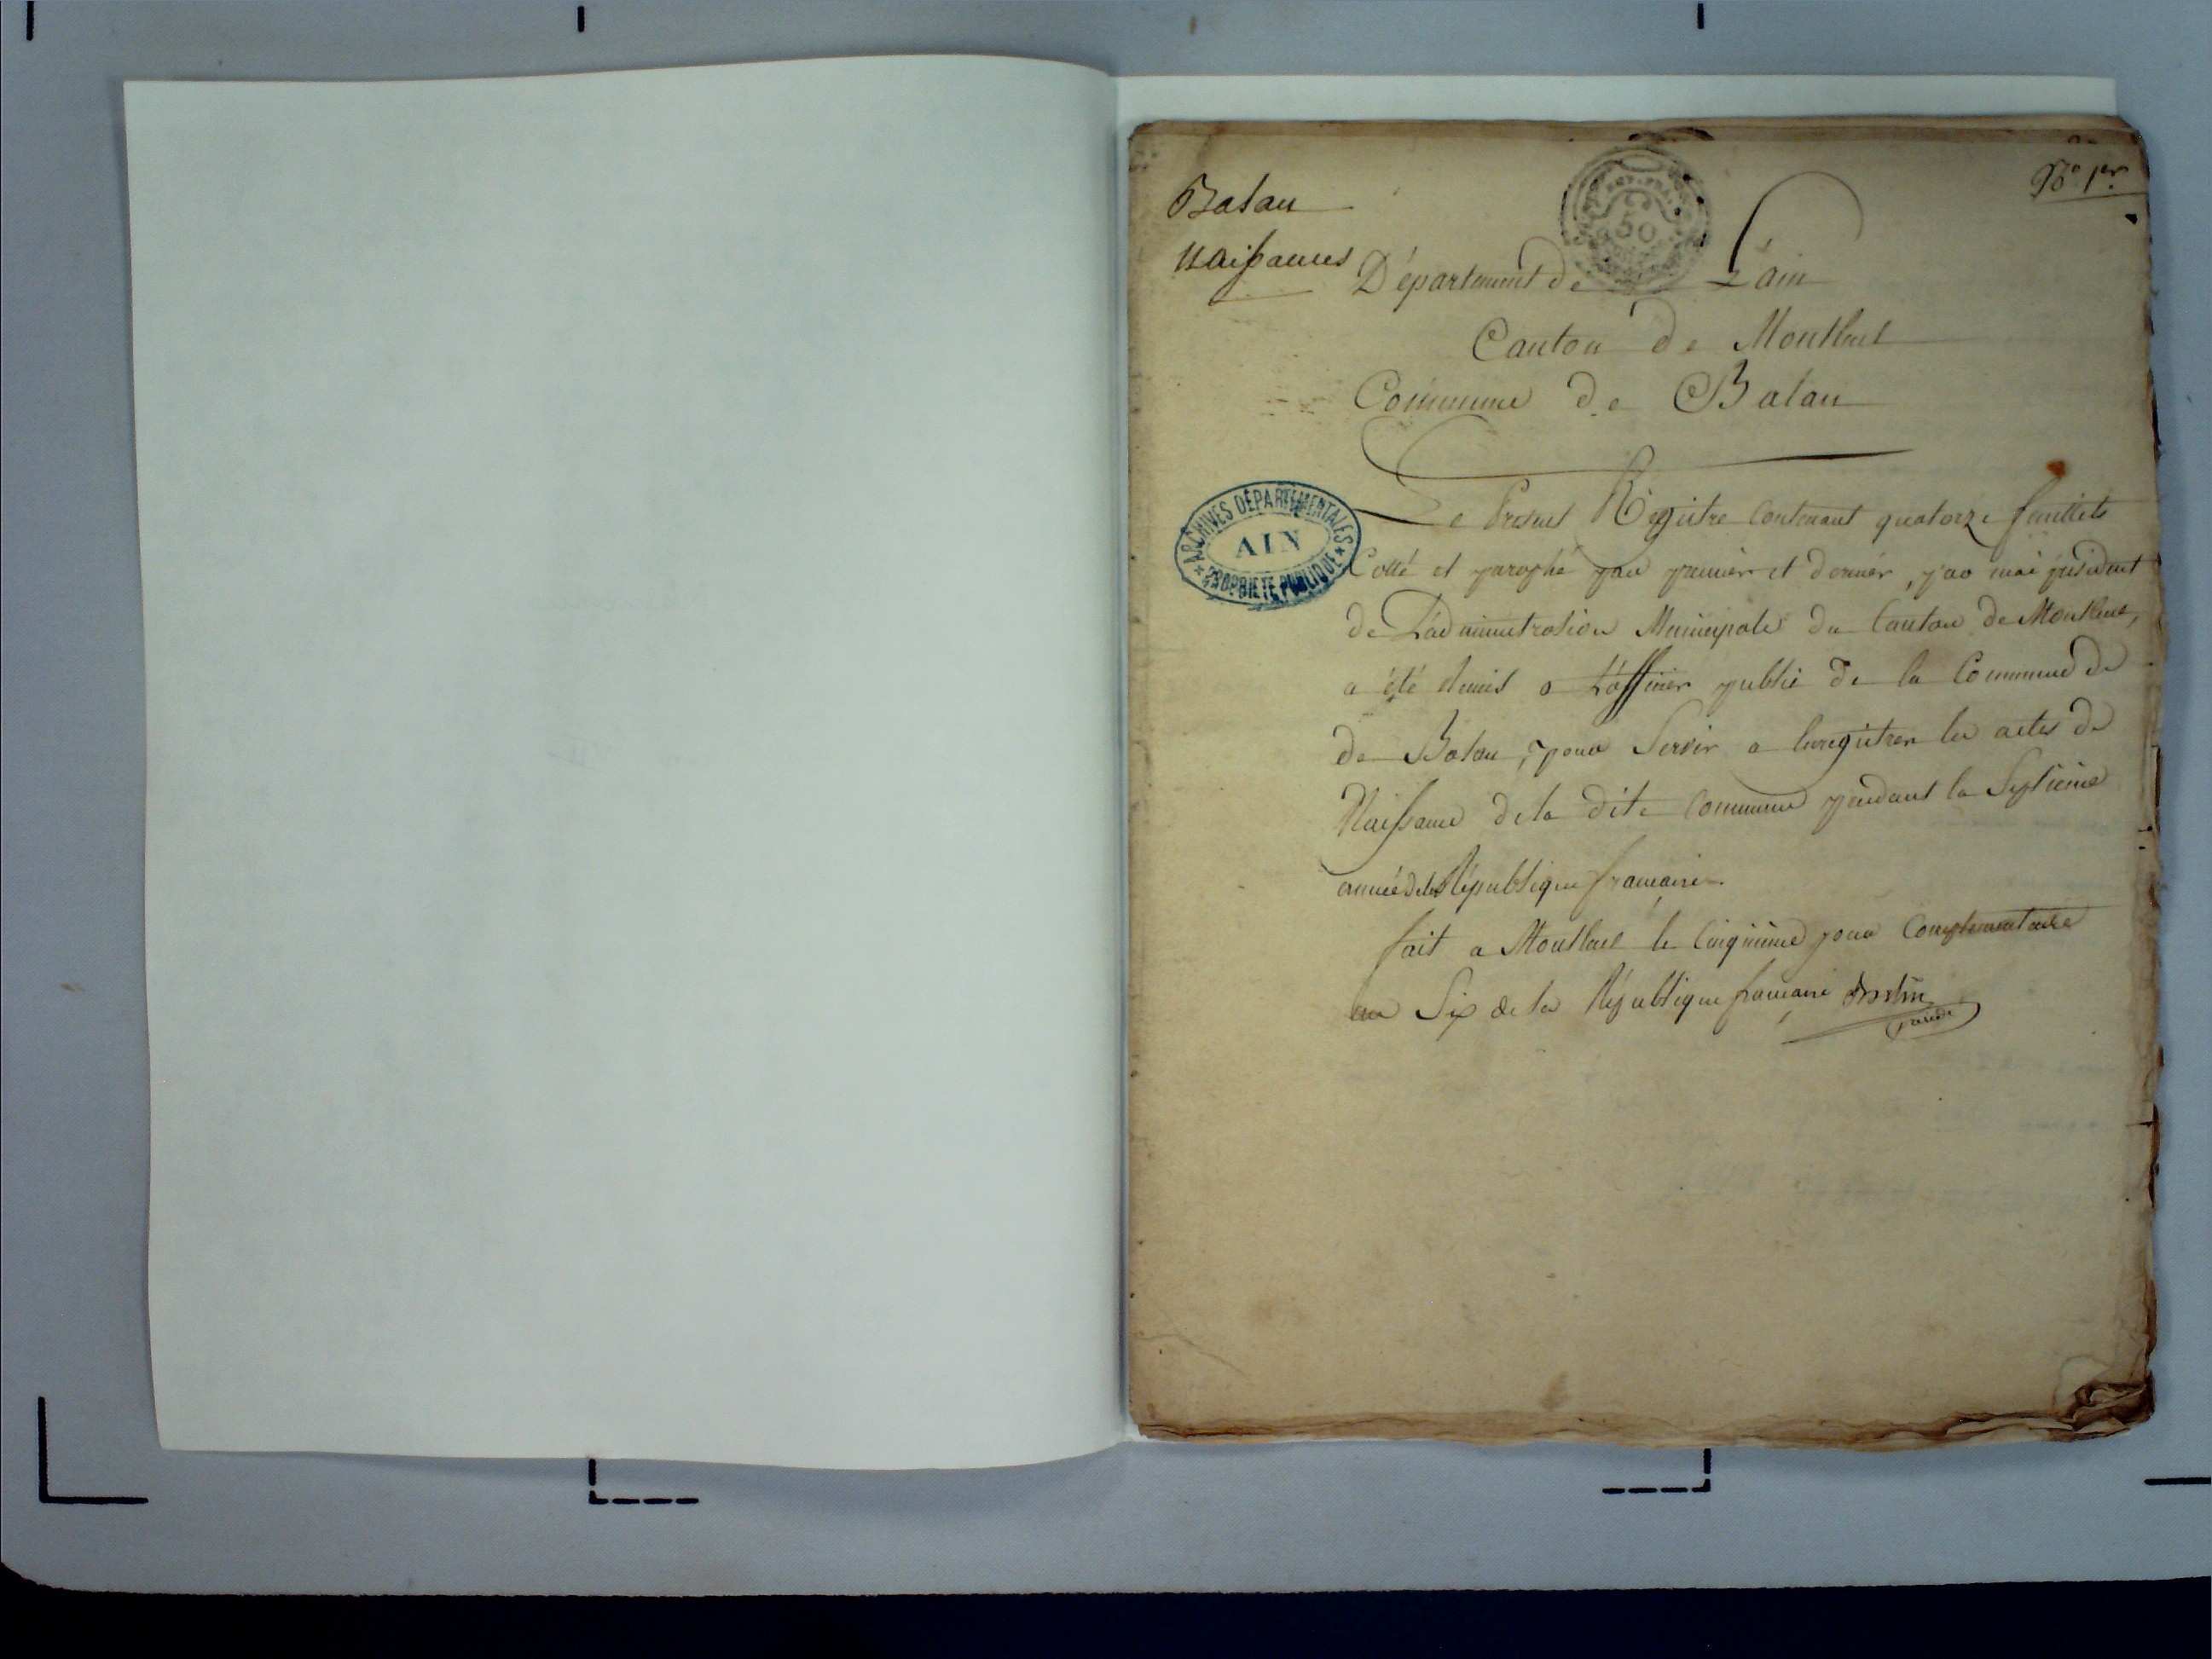 Nº 1er
Balan
Naissances
50
Département de L'ain
Canton de Montluel
Commune de Balan
ARCHIVES DÉPARTEMENTALES
AIN
PROPRIÉTÉ PUBLIQUE
Le Present Régistre Contenant quatorze feuillets
Cotté et paraphé par premier et dernier, par moi président
de L'administration Municipale du Canton de Montluel,
a été remis a L'officier public de la Commune de
de Balan, pour Servir a Enregistrer les actes de
Naissance de la dite Commune pendant la Septieme
année de la République française.
fait a Montluel le Cinquième jour Complementaire
an Six de la République française